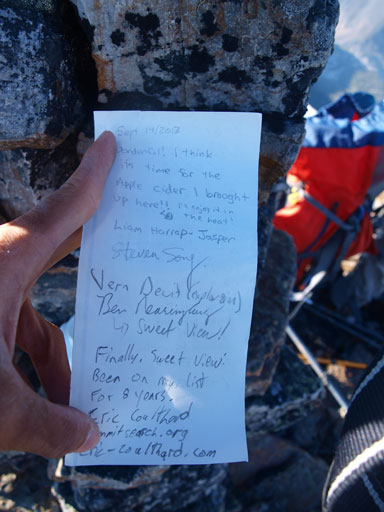 Sept 14/2013
I think
its time for the
Apple cider I brought
up here!! I'll enjoy it in
the heat!
Liam Harrap - Jasper
Steven Song
Vern Dewit (explor8ion)
Ben
↳ Sweet View!
Finally, Sweet View!
Been on my list
For 8 years
Eric Coulthard
mmitsearch.org
ric-coulthard.com